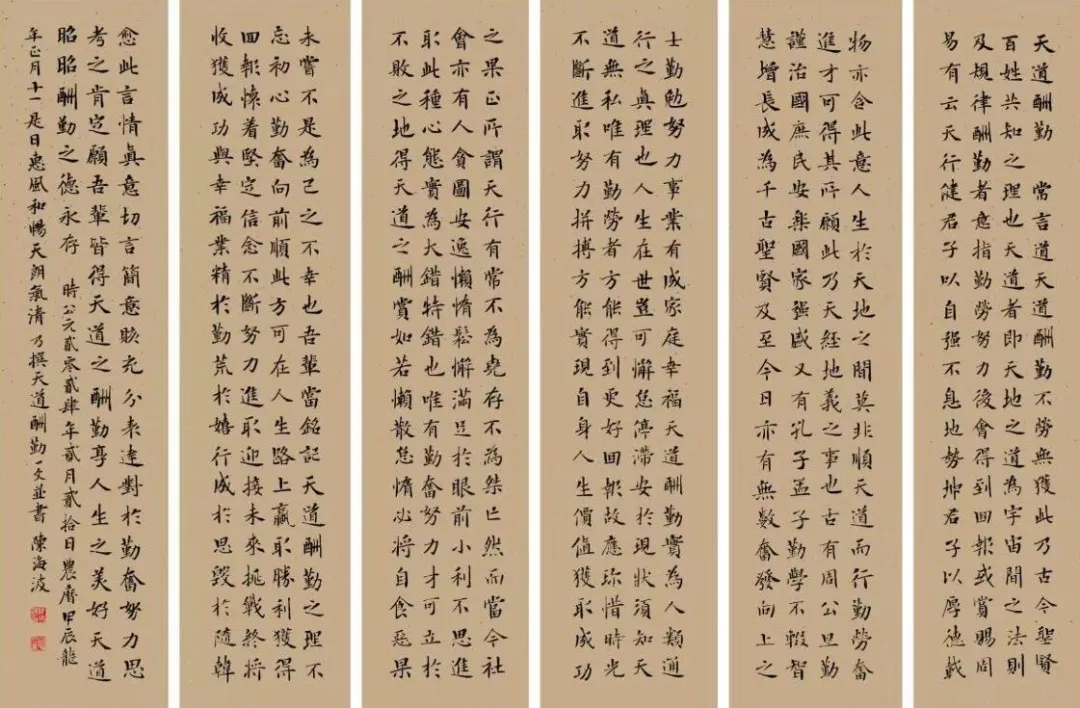 天道酬勤 常言道天道酬勤不勞無獲此乃古今聖賢
百姓共知之理也天道者即天地之道為宇宙間之法則
及規律酬勤者意指勤勞努力後會得到回報或賞賜周
易有云天行健君子以自强不息地勢坤君子以厚德載
物亦含此意人生於天地之間莫非順天道而行勤勞奮
進才可得其所願此乃天經地義之事也古有周公旦勤
謹治國庶民安樂國家强盛又有孔子孟子勤學不輟智
慧增長成為千古聖賢及至今日亦有無數奮發向上之
士勤勉努力事業有成家庭幸福天道酬勤實為人類通
行之真理也人生在世豈可懈怠停滯安於現狀須知天
道無私唯有勤勞者方能得到更好回報故應珍惜時光
不斷進取努力拼搏方能實現自身人生價值獲取成功
之果正所謂天行有常不為堯存不為桀亡然而當今社
會亦有人貪圖安逸懶惰鬆懈滿足於眼前小利不思進
取此種心態實為大錯特錯也唯有勤奮努力才可立於
不敗之地得天道之酬賞如若懶散怠惰必將自食惡果
未嘗不是為己之不幸也吾輩當銘記天道酬勤之理不
忘初心勤奮向前順此方可在人生路上贏取勝利獲得
回報懷着堅定信念不斷努力進取迎接未來挑戰終將
收獲成功與幸福業精於勤荒於嬉行成於思毀於隨韓
愈此言情真意切言簡意賅充分表達對於勤奮努力思
考之肯定願吾輩皆得天道之酬勤享人生之美好天道
昭昭酬勤之德永存 時公元貳零貳肆年貳月貳拾日農曆甲辰龍
年正月十一是日惠風和暢天朗氣清乃撰天道酬勤一文並書 陳海波